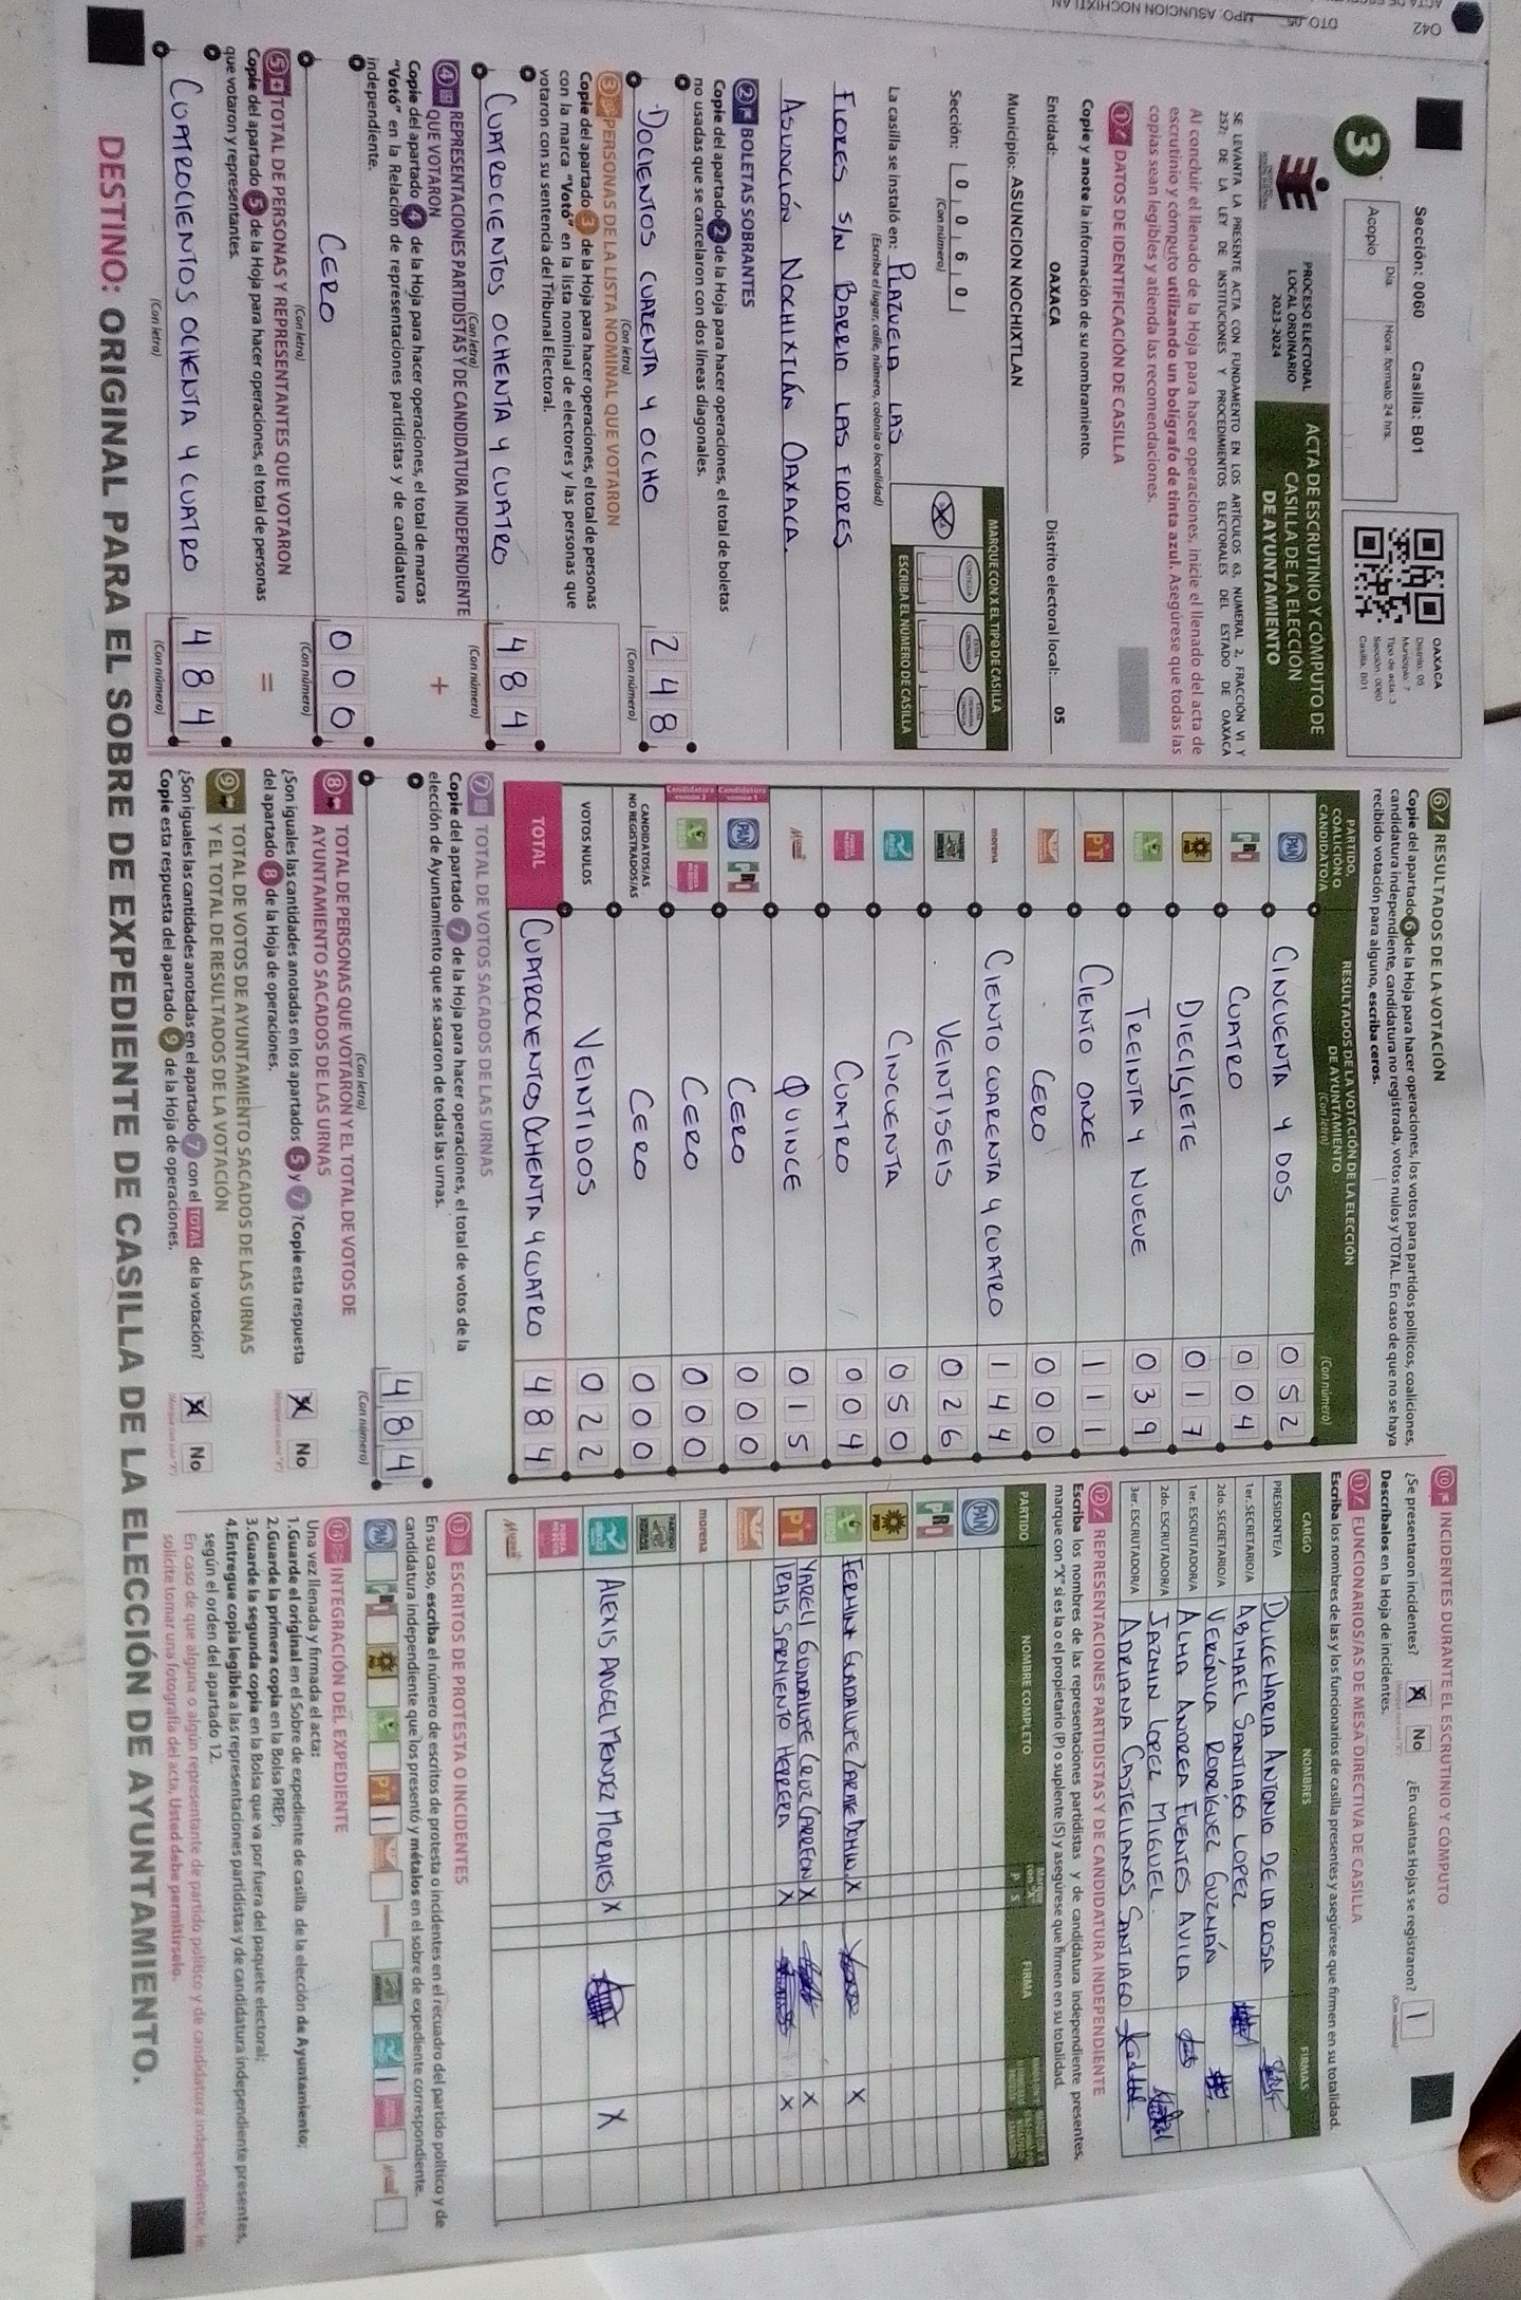 042
ACTA DE
DTO 05 MPO. ASUNCION NOCHIXTLAN
Sección: 0060 Casilla: B01
3
Acopio
Día.
Hora: formato 24 hrs.
OAXACA
Distrito: 05
Municipio: 7
Tipo de acta: 3
Sección: 0060
Casilla: B01
PROCESO ELECTORAL
LOCAL ORDINARIO
2023-2024
ACTA DE ESCRUTINIO Y CÓMPUTO DE
CASILLA DE LA ELECCIÓN
DE AYUNTAMIENTO
SE LEVANTA LA PRESENTE ACTA CON FUNDAMENTO EN LOS ARTÍCULOS 63, NUMERAL 2, FRACCIÓN VI Y
257; DE LA LEY DE INSTITUCIONES Y PROCEDIMIENTOS ELECTORALES DEL ESTADO DE OAXACA
Al concluir el llenado de la Hoja para hacer operaciones, inicie el llenado del acta de
escrutinio y cómputo utilizando un bolígrafo de tinta azul. Asegúrese que todas las
copias sean legibles y atienda las recomendaciones.
1 DATOS DE IDENTIFICACIÓN DE CASILLA
Copie y anote la información de su nombramiento.
Entidad: OAXACA Distrito electoral local: 05
Municipio: ASUNCION NOCHIXTLAN
Sección: 0 0 6 0
(Con número)
MARQUE CON X EL TIPO DE CASILLA
ESCRIBA EL NÚMERO DE CASILLA
La casilla se instaló en: PLAZUELA LAS
(Escriba el lugar, calle, número, colonia o localidad)
FLORES S/N BARRIO LAS FLORES
ASUNCIÓN NOCHIXTLÁN OAXACA.
2 BOLETAS SOBRANTES
Copie del apartado 2 de la Hoja para hacer operaciones, el total de boletas
no usadas que se cancelaron con dos líneas diagonales.
DOCIENTOS CUARENTA Y OCHO 2 4 8
(Con letra) (Con número)
3 PERSONAS DE LA LISTA NOMINAL QUE VOTARON
Copie del apartado 3 de la Hoja para hacer operaciones, el total de personas
con la marca "Votó" en la lista nominal de electores y las personas que
votaron con su sentencia del Tribunal Electoral.
CUATROCIENTOS OCHENTA Y CUATRO 4 8 4
(Con letra) (Con número)
4 REPRESENTACIONES PARTIDISTAS Y DE CANDIDATURA INDEPENDIENTE
QUE VOTARON +
Copie del apartado 4 de la Hoja para hacer operaciones, el total de marcas
"Votó" en la Relación de representaciones partidistas y de candidatura
independiente.
CERO 0 0 0
(Con letra) (Con número)
5 TOTAL DE PERSONAS Y REPRESENTANTES QUE VOTARON
Copie del apartado 5 de la Hoja para hacer operaciones, el total de personas
que votaron y representantes. =
CUATROCIENTOS OCHENTA Y CUATRO 4 8 4
(Con letra) (Con número)
6 RESULTADOS DE LA VOTACIÓN
Copie del apartado 6 de la Hoja para hacer operaciones, los votos para partidos políticos, coaliciones,
candidatura independiente, candidatura no registrada, votos nulos y TOTAL. En caso de que no se haya
recibido votación para alguno, escriba ceros.
PARTIDO,
COALICIÓN O
CANDIDATO/A
RESULTADOS DE LA VOTACIÓN DE LA ELECCIÓN
DE AYUNTAMIENTO
(Con letra) (Con número)
PAN CINCUENTA Y DOS 0 5 2
PRI CUATRO 0 0 4
PRD DIECISIETE 0 1 7
VERDE TREINTA Y NUEVE 0 3 9
PT CIENTO ONCE 1 1 1
CERO 0 0 0
morena CIENTO CUARENTA Y CUATRO 1 4 4
VEINTISEIS 0 2 6
CINCUENTA 0 5 0
CUATRO 0 0 4
QUINCE 0 1 5
PAN PRI CERO 0 0 0
VERDE CERO 0 0 0
CANDIDATOS/AS
NO REGISTRADOS/AS CERO 0 0 0
VOTOS NULOS VEINTIDOS 0 2 2
TOTAL CUATROCIENTOS OCHENTA Y CUATRO 4 8 4
7 TOTAL DE VOTOS SACADOS DE LAS URNAS
Copie del apartado 7 de la Hoja para hacer operaciones, el total de votos de la
elección de Ayuntamiento que se sacaron de todas las urnas.
4 8 4
(Con letra) (Con número)
8 TOTAL DE PERSONAS QUE VOTARON Y EL TOTAL DE VOTOS DE
AYUNTAMIENTO SACADOS DE LAS URNAS
¿Son iguales las cantidades anotadas en los apartados 5 y 7? Copie esta respuesta
del apartado 8 de la Hoja de operaciones. X No
9 TOTAL DE VOTOS DE AYUNTAMIENTO SACADOS DE LAS URNAS
Y EL TOTAL DE RESULTADOS DE LA VOTACIÓN
¿Son iguales las cantidades anotadas en el apartado 7 con el TOTAL de la votación?
Copie esta respuesta del apartado 9 de la Hoja de operaciones. X No
10 INCIDENTES DURANTE EL ESCRUTINIO Y CÓMPUTO
¿Se presentaron incidentes? X No ¿En cuántas Hojas se registraron? 1
Descríbalos en la Hoja de incidentes.
11 FUNCIONARIOS/AS DE MESA DIRECTIVA DE CASILLA
Escriba los nombres de las y los funcionarios de casilla presentes y asegúrese que firmen en su totalidad.
CARGO NOMBRES FIRMAS
PRESIDENTE/A DULCE MARIA ANTONIO DE LA ROSA
1er. SECRETARIO/A ABIMAEL SANTIAGO LOPEZ
2do. SECRETARIO/A VERÓNICA RODRÍGUEZ GUZMÁN
1er. ESCRUTADOR/A ALMA ANDREA FUENTES AVILA
2do. ESCRUTADOR/A JAZMIN LOPEZ MIGUEL
3er. ESCRUTADOR/A ADRIANA CASTELLANOS SANTIAGO
12 REPRESENTACIONES PARTIDISTAS Y DE CANDIDATURA INDEPENDIENTE
Escriba los nombres de las representaciones partidistas y de candidatura independiente presentes,
marque con "X" si es la o el propietario (P) o suplente (S) y asegúrese que firmen en su totalidad.
PARTIDO NOMBRE COMPLETO P S FIRMA
PAN
PRI
PRD
VERDE GUADALUPE X X
YARELI GUADALUPE CRUZ CARREÓN X X
PT IRAIS SARMIENTO HERRERA X X
morena
ALEXIS ANGEL MENDEZ MORALES X X
13 ESCRITOS DE PROTESTA O INCIDENTES
En su caso, escriba el número de escritos de protesta o incidentes en el recuadro del partido político y de
candidatura independiente que los presentó y métalos en el sobre de expediente correspondiente.
14 INTEGRACIÓN DEL EXPEDIENTE
Una vez llenada y firmada el acta:
1.Guarde el original en el Sobre de expediente de casilla de la elección de Ayuntamiento;
2.Guarde la primera copia en la Bolsa PREP;
3.Guarde la segunda copia en la Bolsa que va por fuera del paquete electoral;
4.Entregue copia legible a las representaciones partidistas y de candidatura independiente presentes,
según el orden del apartado 12.
En caso de que alguna o algún representante de partido político y de candidatura independiente, le
solicite tomar una fotografía del acta, Usted debe permitírselo.
DESTINO: ORIGINAL PARA EL SOBRE DE EXPEDIENTE DE CASILLA DE LA ELECCIÓN DE AYUNTAMIENTO.